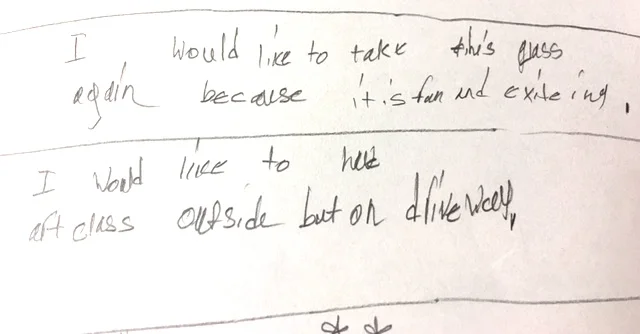 I would like to take this glass
again because it is fun and exiteing.
I would like to
art class outside but on driveway,